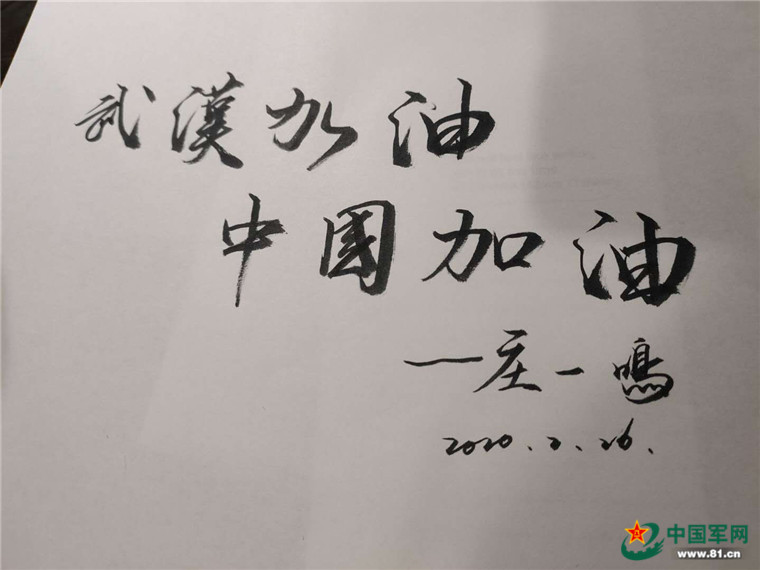 武漢加油
中國加油
一庄一鳴
2020.2.26.
中国军网
www.81.cn